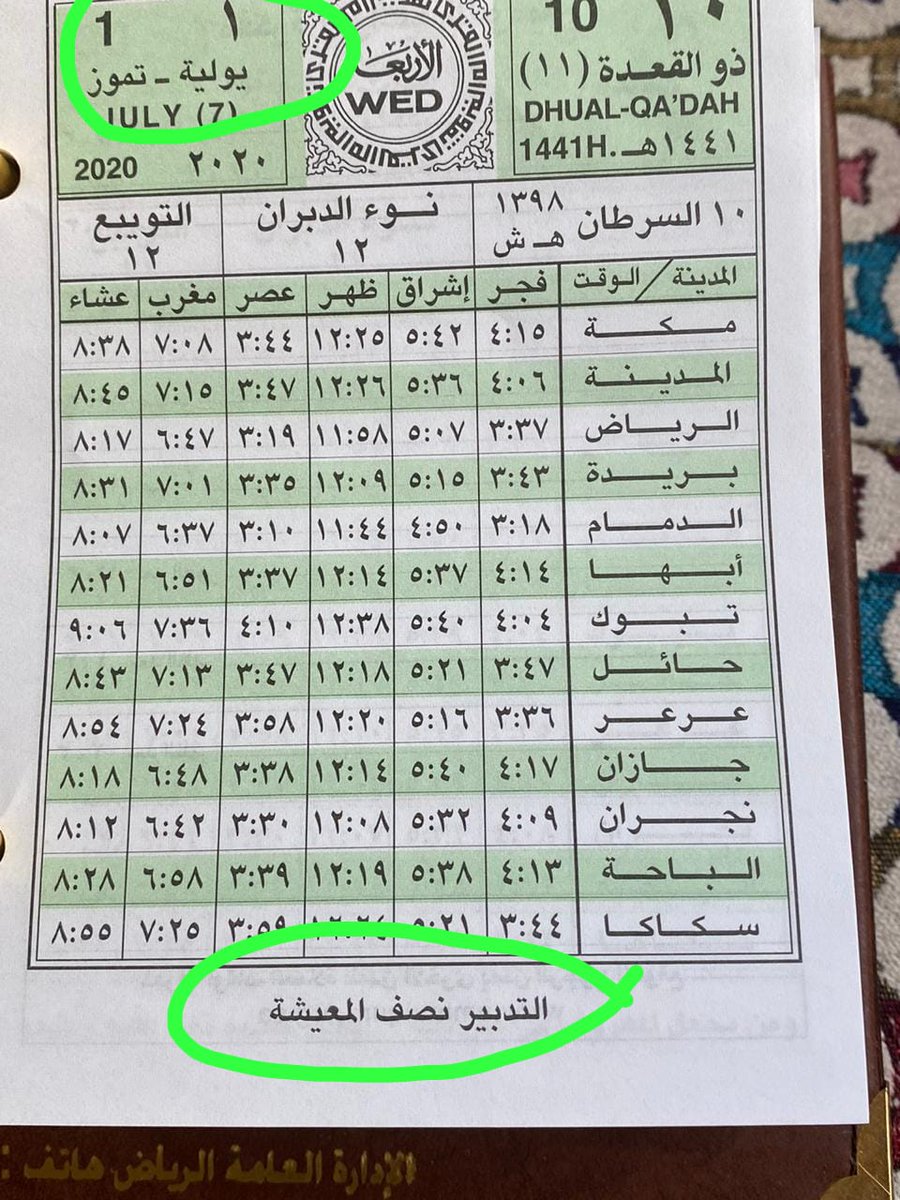 ١٠ 10
ذو القعدة (١١)
DHUAL-QA'DAH
1441H. ١٤٤١هـ
الأربعاء
WED
١ 1
يولية - تموز
JULY (7)
٢٠٢٠ 2020
١٠ السرطان ١٣٩٨ هـ ش
نوء الدبران
١٢
التويبع
١٢
المدينة / الوقت فجر إشراق ظهر عصر مغرب عشاء
مكة ٤:١٥ ٥:٤٢ ١٢:٢٥ ٣:٤٤ ٧:٠٨ ٨:٣٨
المدينة ٤:٠٦ ٥:٣٦ ١٢:٢٦ ٣:٤٧ ٧:١٥ ٨:٤٥
الرياض ٣:٣٧ ٥:٠٧ ١١:٥٨ ٣:١٩ ٦:٤٧ ٨:١٧
بريدة ٣:٤٣ ٥:١٥ ١٢:٠٩ ٣:٣٥ ٧:٠١ ٨:٣١
الدمام ٣:١٨ ٤:٥٠ ١١:٤٤ ٣:١٠ ٦:٣٧ ٨:٠٧
أبها ٤:١٤ ٥:٣٧ ١٢:١٤ ٣:٣٧ ٦:٥١ ٨:٢١
تبوك ٤:٠٤ ٥:٤٠ ١٢:٣٨ ٤:١٠ ٧:٣٦ ٩:٠٦
حائل ٣:٤٧ ٥:٢١ ١٢:١٨ ٣:٤٧ ٧:١٣ ٨:٤٣
عرعر ٣:٣٦ ٥:١٦ ١٢:٢٠ ٣:٥٨ ٧:٢٤ ٨:٥٤
جازان ٤:١٧ ٥:٤٠ ١٢:١٤ ٣:٣٨ ٦:٤٨ ٨:١٨
نجران ٤:٠٩ ٥:٣٢ ١٢:٠٨ ٣:٣٠ ٦:٤٢ ٨:١٢
الباحة ٤:١٣ ٥:٣٨ ١٢:١٩ ٣:٣٩ ٦:٥٨ ٨:٢٨
سكاكا ٣:٤٤ ٥:٢١ ١٢:٢٤ ٣:٥٩ ٧:٢٥ ٨:٥٥
التدبير نصف المعيشة
الإدارة العامة الرياض هاتف :